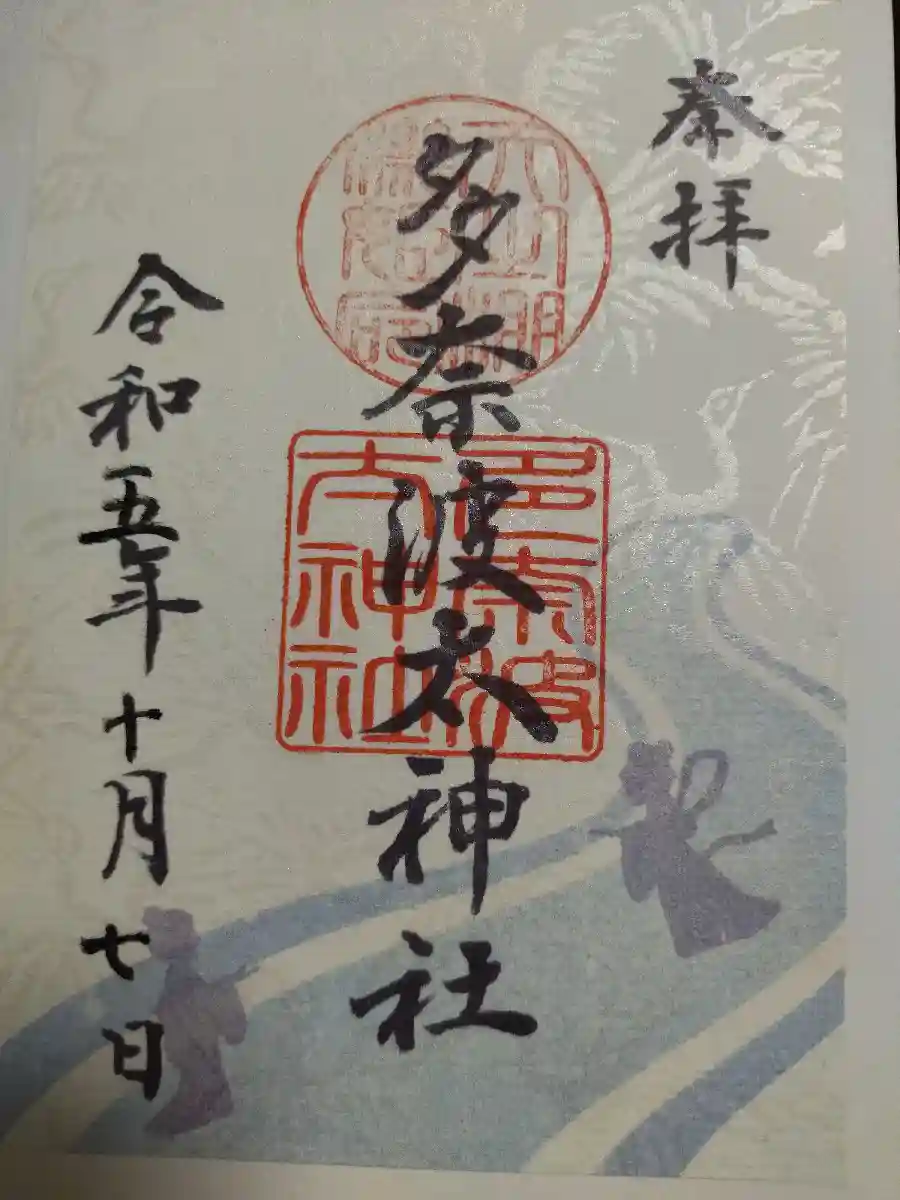 奉拝
多奈波太神社
多奈波
太神社
令和五年十月七日